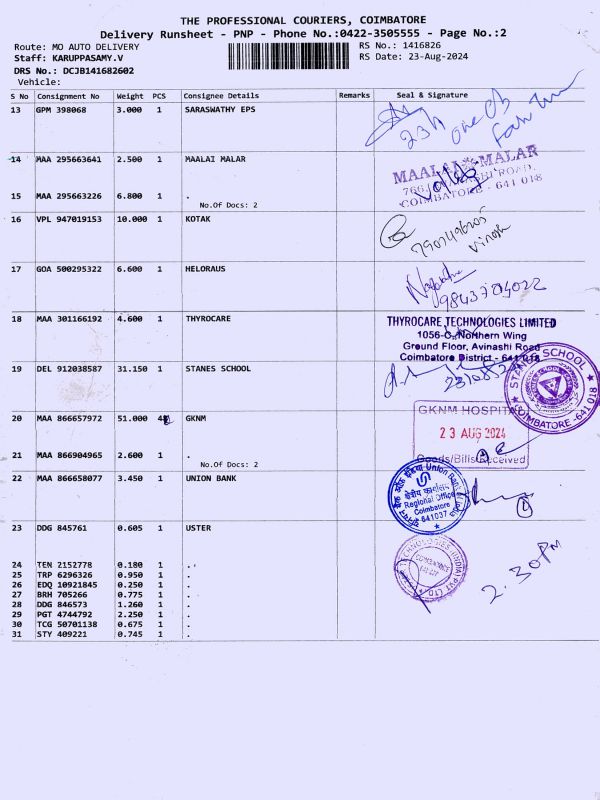 THE PROFESSIONAL COURIERS, COIMBATORE
Delivery Runsheet - PNP - Phone No.:0422-3505555 - Page No.:2
Route: MO AUTO DELIVERY
RS No.: 1416826
Staff: KARUPPASAMY.V
RS Date: 23-Aug-2024
DRS No.: DCJB141682602
Vehicle:
S No Consignment No Weight PCS Consignee Details Remarks Seal & Signature
13 GPM 398068 3.000 1 SARASWATHY EPS
one CB
14 MAA 295663641 2.500 1 MAALAI MALAR
MAALAI MALAR
COIMBATORE - 641 018
15 MAA 295663226 6.800 1 .
No.Of Docs: 2
16 VPL 947019153 10.000 1 KOTAK
17 GOA 500295322 6.600 1 HELORAUS
18 MAA 301166192 4.600 1 THYROCARE
THYROCARE TECHNOLOGIES LIMITED
1056-C, Northern Wing
Ground Floor, Avinashi Road
Coimbatore District - 641 018
19 DEL 912038587 31.150 1 STANES SCHOOL
STANES SCHOOL
COIMBATORE - 641 018
20 MAA 866657972 51.000 GKNM
GKNM HOSPITAL
23 AUG 2024
Goods/Bills Received
21 MAA 866904965 2.600 1 .
No.Of Docs: 2
22 MAA 866658077 3.450 1 UNION BANK
Union Bank
क्षेत्रीय कार्यालय
Regional Office
Coimbatore
641037
23 DDG 845761 0.605 1 USTER
24 TEN 2152778 0.180 1 .
25 TRP 6296326 0.950 1 .
26 EDQ 10921845 0.250 1 .
27 BRH 705266 0.775 1 .
28 DDG 846573 1.260 1 .
29 PGT 4744792 2.250 1 .
30 TCG 50701138 0.675 1 .
31 STY 409221 0.745 1 .
2.30PM